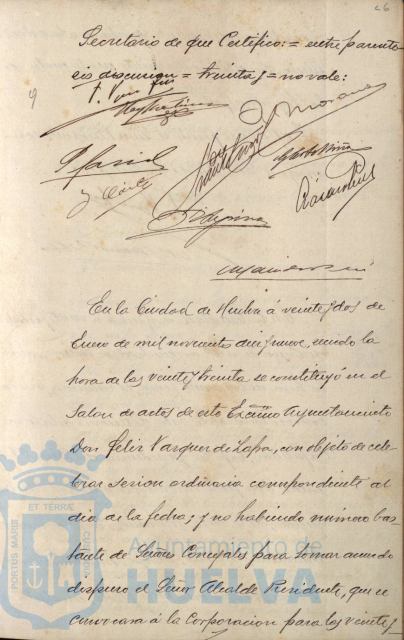 26
Secretario de que Certifico: = entre parente
cis discucion = treinta y = no vale:
9
En la Ciudad de Huelva á veinte y dos de
Enero de mil novecientos diez y nueve, siendo la
hora de las veinte y treinta se constituyó en el
Salon de actos de este Excmo Ayuntamiento
Don Felix Vazquez de Zafra, con objeto de cele-
brar sesion ordinaria correspondiente al
dia de la fecha; y no habiendo número bas-
tante de Señores Concejales para tomar acuerdo
dispuso el Señor Alcalde Presidente, que se
convocara á la Corporacion para las veinte y
ET TERRÆ
PORTUS MARIS
CUSTODIA
Ayuntamiento de
HUELVA